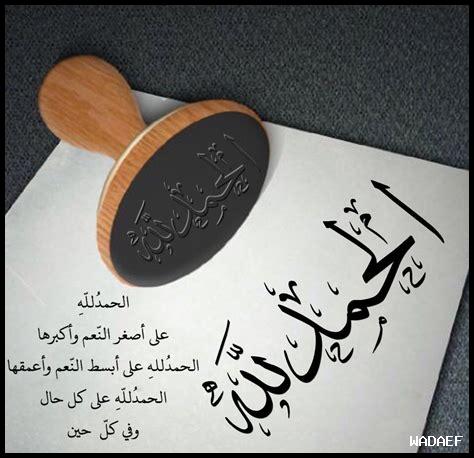 الحمد لله
الحمد لله
الحمدُللّهِ
على أصغر النّعم وأكبرها
الحمدُللهِ على أبسط النّعم وأعمقها
الحمدُللّهِ على كل حال
وفي كلّ حين
WADAEF